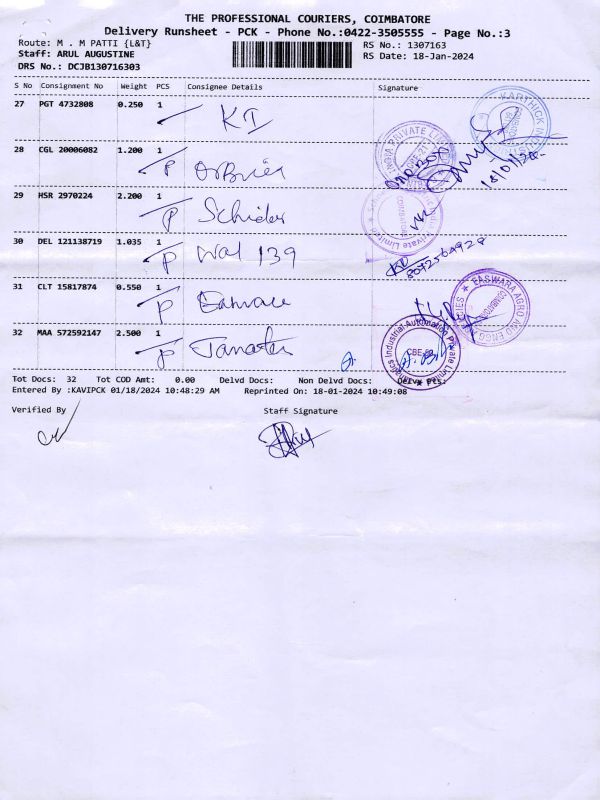 THE PROFESSIONAL COURIERS, COIMBATORE
Delivery Runsheet - PCK - Phone No.:0422-3505555 - Page No.:3
Route: M . M PATTI {L&T}
RS No.: 1307163
Staff: ARUL AUGUSTINE
RS Date: 18-Jan-2024
DRS No.: DCJB130716303
S No Consignment No Weight PCS Consignee Details Signature
27 PGT 4732808 0.250 1
KARTHICK
INDIA PRIVATE
28 CGL 20006082 1.200 1
P
18/01/24
29 HSR 2970224 2.200 1
P Schider
Private Limited
COIMBATORE
30 DEL 121138719 1.035 1
P Wal 139
8072569928
31 CLT 15817874 0.550 1
P
EASWARA AGRO AND ENGG
COIMBATORE
32 MAA 572592147 2.500 1
P
Industrial Automation Private Limited
CBE-62
Tot Docs: 32 Tot COD Amt: 0.00 Delvd Docs: Non Delvd Docs: Delvd Pcs:
Entered By :KAVIPCK 01/18/2024 10:48:29 AM Reprinted On: 18-01-2024 10:49:08
Verified By Staff Signature